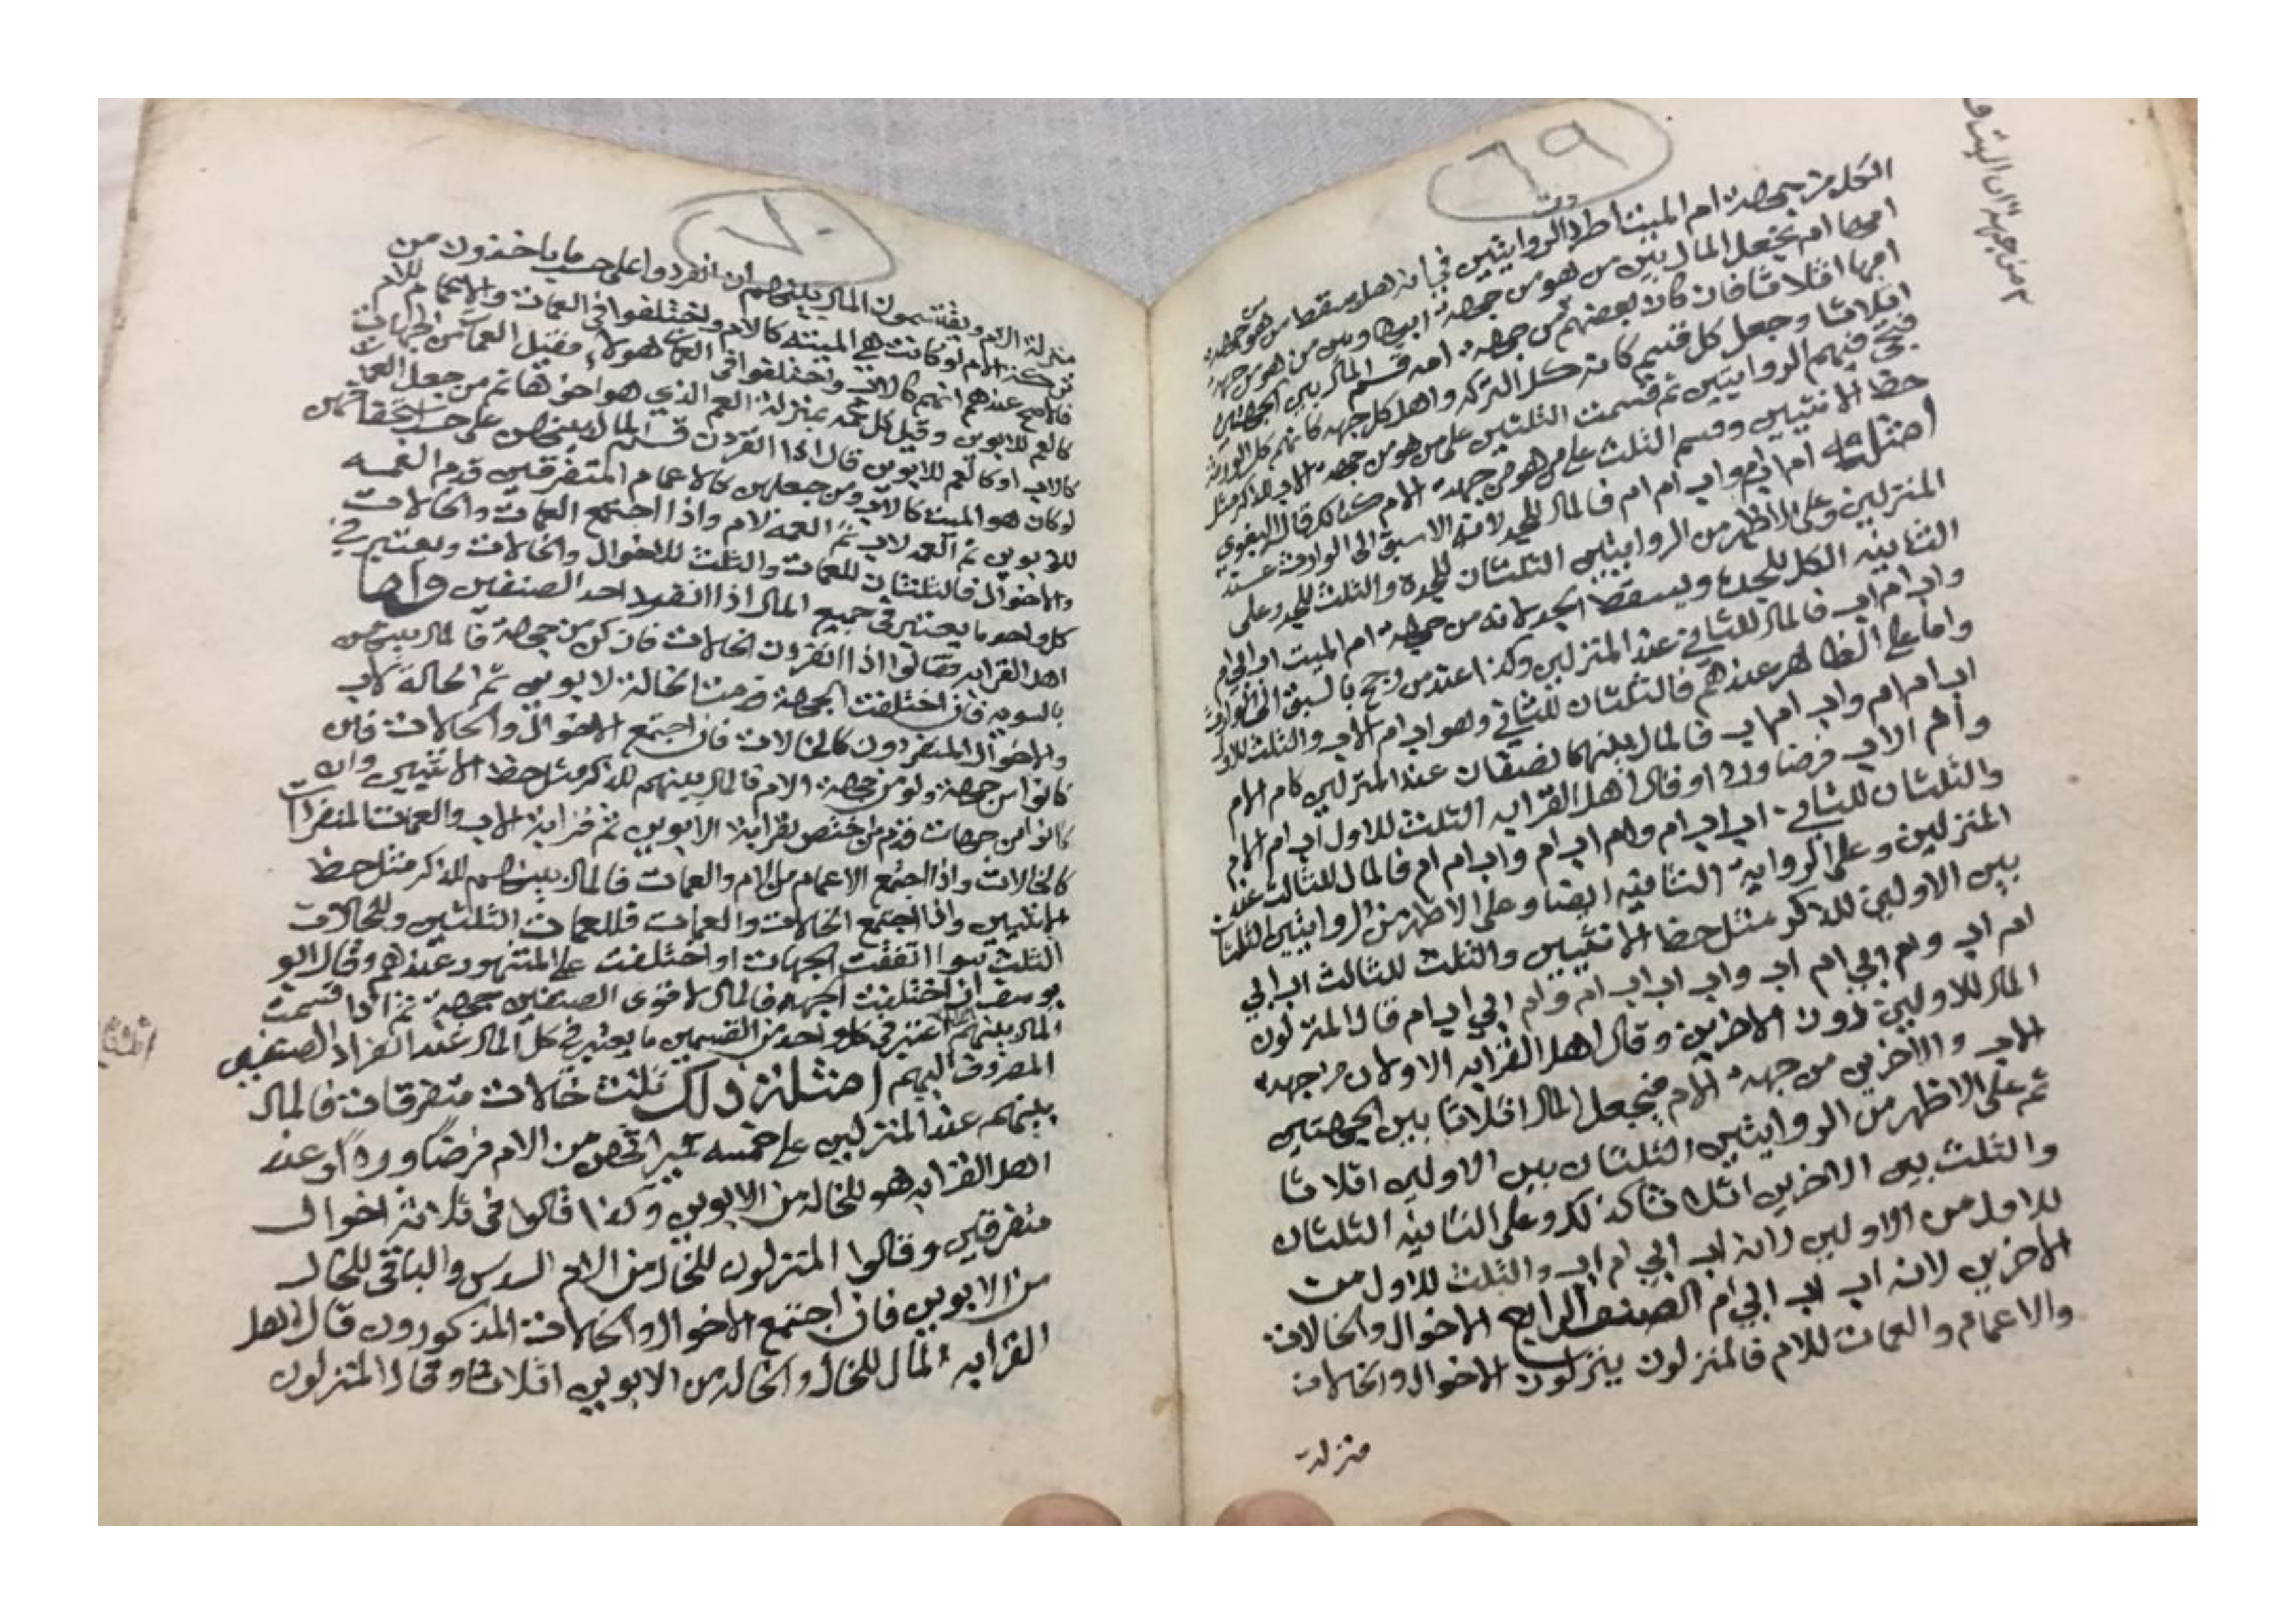 ٦٩
الكل من جهة ام الميت اطرد الروايتين في انه هل يسقط من هو من جهة
امها ام يجعل المال بين من هو من جهة ابيها وبين من هو من جهة
امها اثلاثا فان كان بعضهم من جهة امه قسم المال بين الجهتين
اثلاثا وجعل كل قسم كانه كل التركه واهل كل جهه كانهم كل الورثة
فتجي فيهم الروايتين ثم قسمت الثلثين على من هو من جهة الاب للذكر مثل
حظ الانثيين وقسم الثلث على من هو من جهة الام كذلك قال البغوي
امثله ام اب ام واب ام ام فالمال للجد لانه الاسبق الى الوارث عند
المنزلين وعلى الاظهر من الروايتين الثلثان للجدة والثلث للجد وعلى
الثانيه الكل للجدة ويسقط الجد لانه من جهة ام الميت اب ابي ام
واب ام اب فالمال للثاني عند المنزلين وكذا عند من رجح بالسبق الى الوارث
واما على الظاهر عندهم فالثلثان للثاني وهو اب ام الاب والثلث للاول
اب ام ام واب ام اب فالمال بينهما نصفان عند المنزلين كام الام
وام الاب فرضا وردا وقال اهل القرابه الثلث للاول اب ام الام
والثلثان للثاني اب اب ام وام اب ام واب ام ام فالمال للثالث عند
المنزلين وعلى الرواية الثانيه ايضا وعلى الاظهر من الروايتين الثلثان
بين الاولين للذكر مثل حظ الانثيين والثلث للثالث اب ابي
ام اب وام ابي ام اب واب اب اب ام وام ابي اب ام قال المنزلون
المال للاولين دون الاخرين وقال اهل القرابه الاولان من جهة
الاب والاخرين من جهة الام فيجعل المال اثلاثا بين الجهتين
ثم على الاظهر من الروايتين الثلثان بين الاولين اثلاثا
والثلث بين الاخرين اثلاثا كذلك وعلى الثانيه الثلثان
للاول من الاولين لانه اب ابي ام اب والثلث للاول من
الاخرين لانه اب اب ابي ام الصنف الرابع الاخوال والخالات
والاعمام والعمات للام فالمنزلون ينزلون الاخوال والخالات
منزلة
٧٠
منزلة الام ويقتسمون المال بينهم ان انفردوا على حسب ما ياخذون من
تركة الام لو كانت هي الميته كالام واختلفوا في العمات والاعمام للام
فالاصح عندهم انهم كالاب واختلفوا في العمات هولاء فقيل العمات من الجهات
كالعم للابوين وقيل كل عمه بمنزلة العم الذي هو اخوها ثم من جعل العمات
كالاب او كالعم للابوين قال اذا انفردن قسم المال بينهن على حسب استحقاقهن
لو كان هو الميت كالاب ومن جعلهن كالاعمام المتفرقين قدم العمه
للابوين ثم العمه لاب ثم العمه لام واذا اجتمع العمات والخالات
والاخوال فالثلثان للعمات والثلث للاخوال والخالات ويعتبر في
كل واحد ما يعتبر في جميع المال اذا انفرد احد الصنفين واما
اهل القرابه فقالوا اذا انفردن الخالات فان كن من جهة فالمال بينهن
بالسويه فان اختلفت الجهة قدمت الخالة لابوين ثم الخالة لاب
والاخوال المنفردون كالخالات فان اجتمع الاخوال والخالات فان
كانوا من جهة ولو من جهة الام فالمال بينهم للذكر مثل حظ الانثيين وان
كانوا من جهات قدم من اختص بقرابة الابوين ثم قرابة الاب والعمات المنفردات
كالخالات واذا اجتمع الاعمام من الام والعمات فالمال بينهم للذكر مثل حظ
الانثيين واذا اجتمع الخالات والعمات فللعمات الثلثين وللخالات
الثلث سوا اتفقت الجهات او اختلفت على المشهور عندهم وقال ابو
يوسف ان اختلفت الجهه فالمال لاقوى الصنفين جهة ثم اذا قسمت
المال بينهم اعتبر في كل واحد من القسمين ما يعتبر في كل المال عند انفراد الصنفين
المصروف اليهم امثلة ذلك ثلث خالات متفرقات فالمال
بينهم عند المنزلين على خمسه كميراثهن من الام فرضا وردا وعند
اهل القرابه هو للخاله من الابوين وكذا قالوا في ثلاثة اخوال
متفرقين وقالوا المنزلون للخال من الام السدس والباقي للخال
من الابوين فان اجتمع الاخوال والخالات المذكورون قال اهل
القرابه المال للخال والخاله من الابوين اثلاثا وقال المنزلون